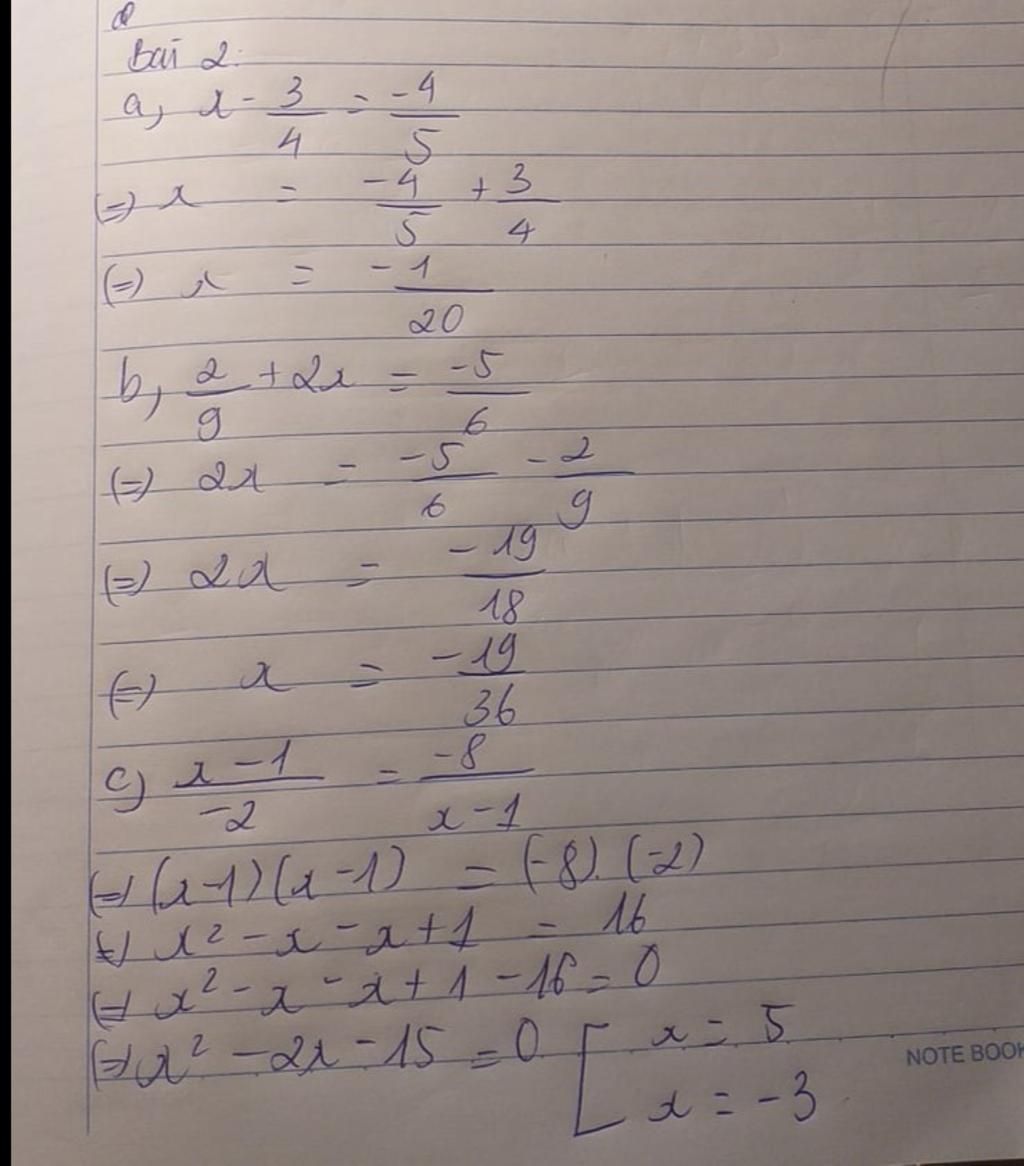 Bài 2:
a, x - 3/4 = -4/5
(=) x = -4/5 + 3/4
(=) x = -1/20
b, 2/9 + 2x = -5/6
(=) 2x = -5/6 - 2/9
(=) 2x = -19/18
(=) x = -19/36
c) x-1/-2 = -8/x-1
(=) (x-1)(x-1) = (-8).(-2)
(=) x² - x - x + 1 = 16
(=) x² - x - x + 1 - 16 = 0
(=) x² - 2x - 15 = 0 [ x = 5
x = -3
NOTE BOOK